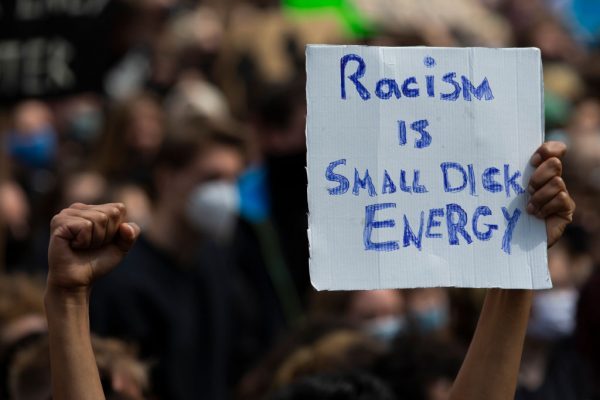 TTER
Racism
is
Small Dick
Energy